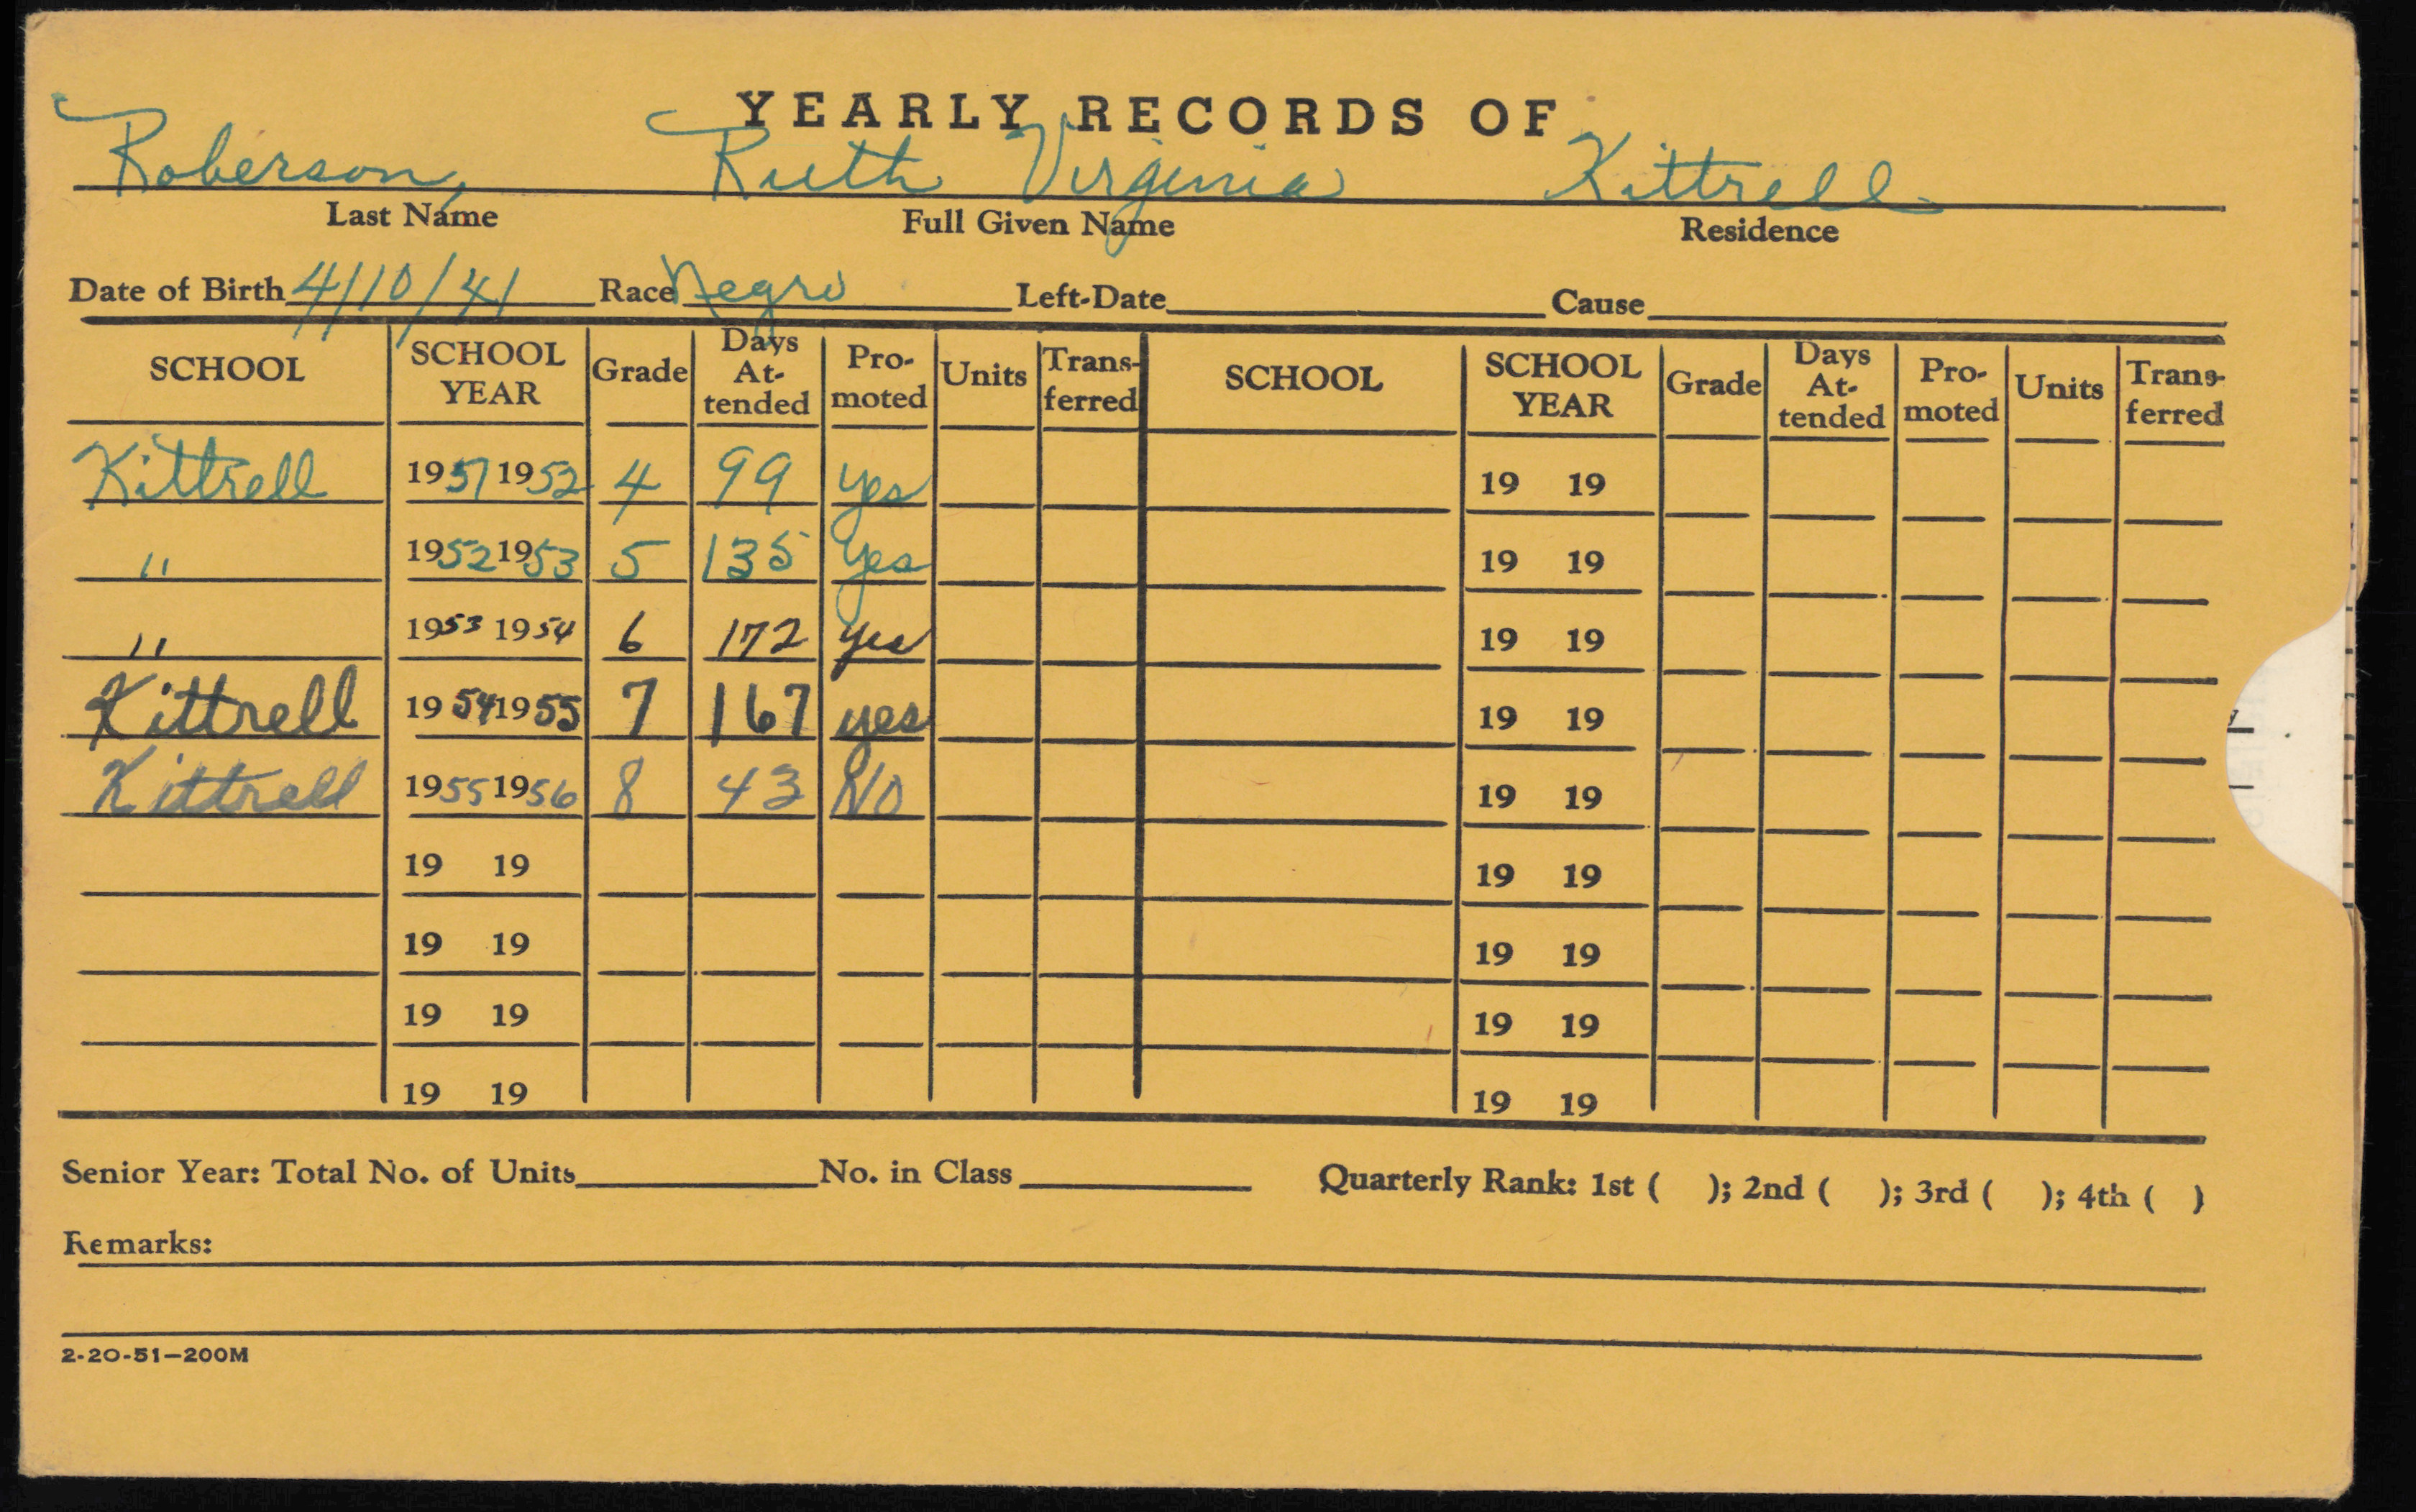 YEARLY RECORDS OF
Roberson, Ruth Virginia Kittrell
Last Name Full Given Name Residence
Date of Birth 4/10/41 Race Negro Left-Date Cause
SCHOOL SCHOOL YEAR Grade Days At-tended Pro-moted Units Trans-ferred SCHOOL SCHOOL YEAR Grade Days At-tended Pro-moted Units Trans-ferred
Kittrell 1951 1952 4 99 Yes 19 19
" 1952 1953 5 135 Yes 19 19
" 1953 1954 6 172 yes 19 19
Kittrell 1954 1955 7 167 yes 19 19
Kittrell 1955 1956 8 43 No 19 19
19 19 19 19
19 19 19 19
19 19 19 19
19 19 19 19
Senior Year: Total No. of Units No. in Class Quarterly Rank: 1st ( ); 2nd ( ); 3rd ( ); 4th ( )
Remarks:
2-20-51—200M